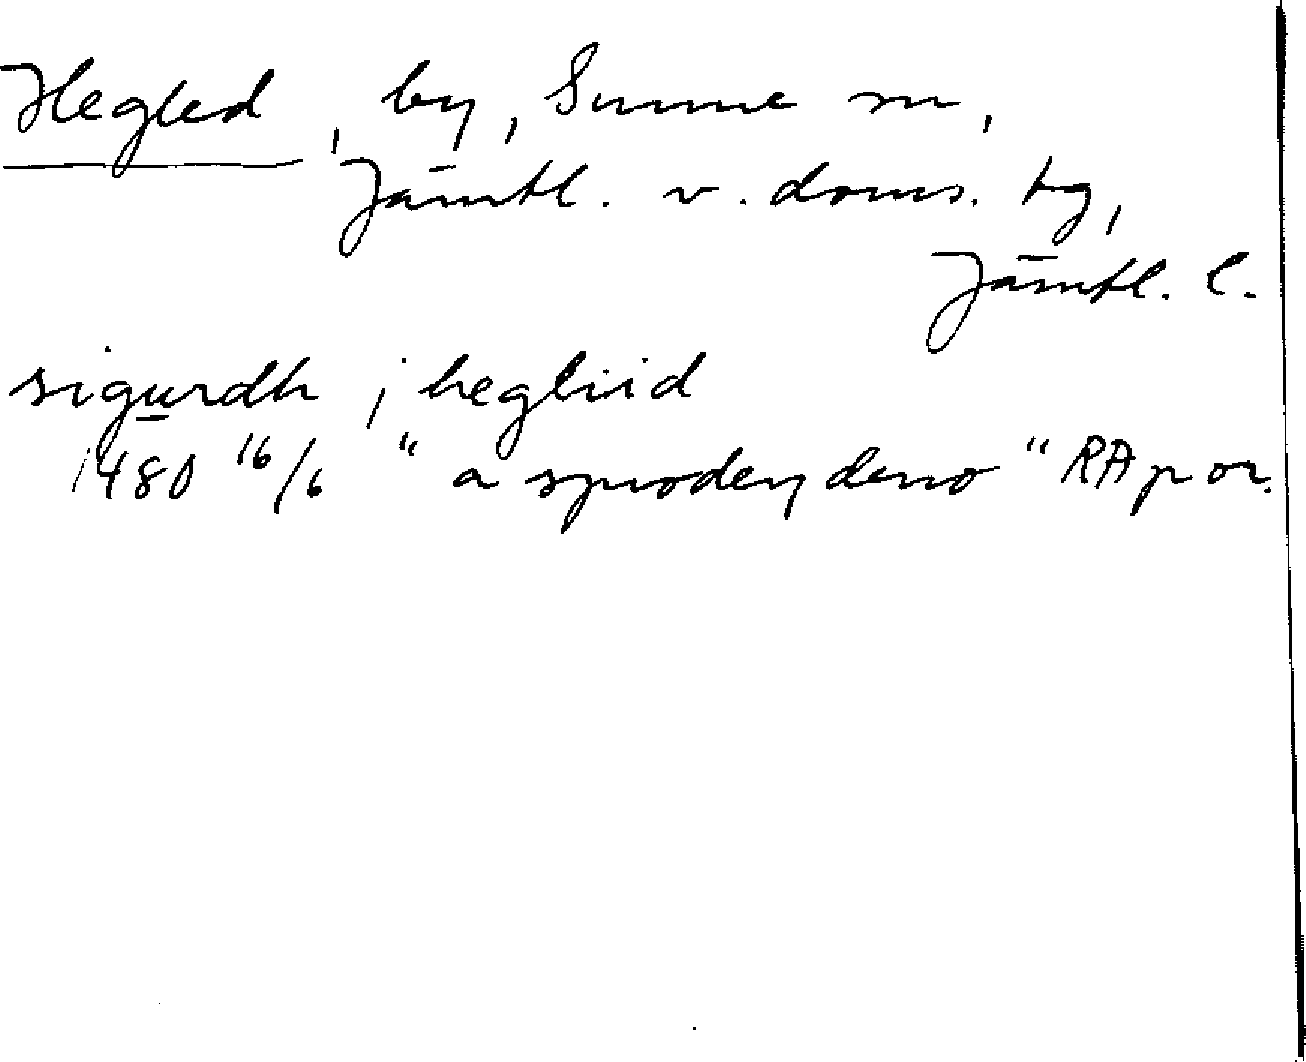 Hegled, by, Sunne sn,
Jämtl. v. doms. tg,
Jämtl. l.
sigurdh j hegliid
1480 16/6 "a sprodeydeno" RAp or.